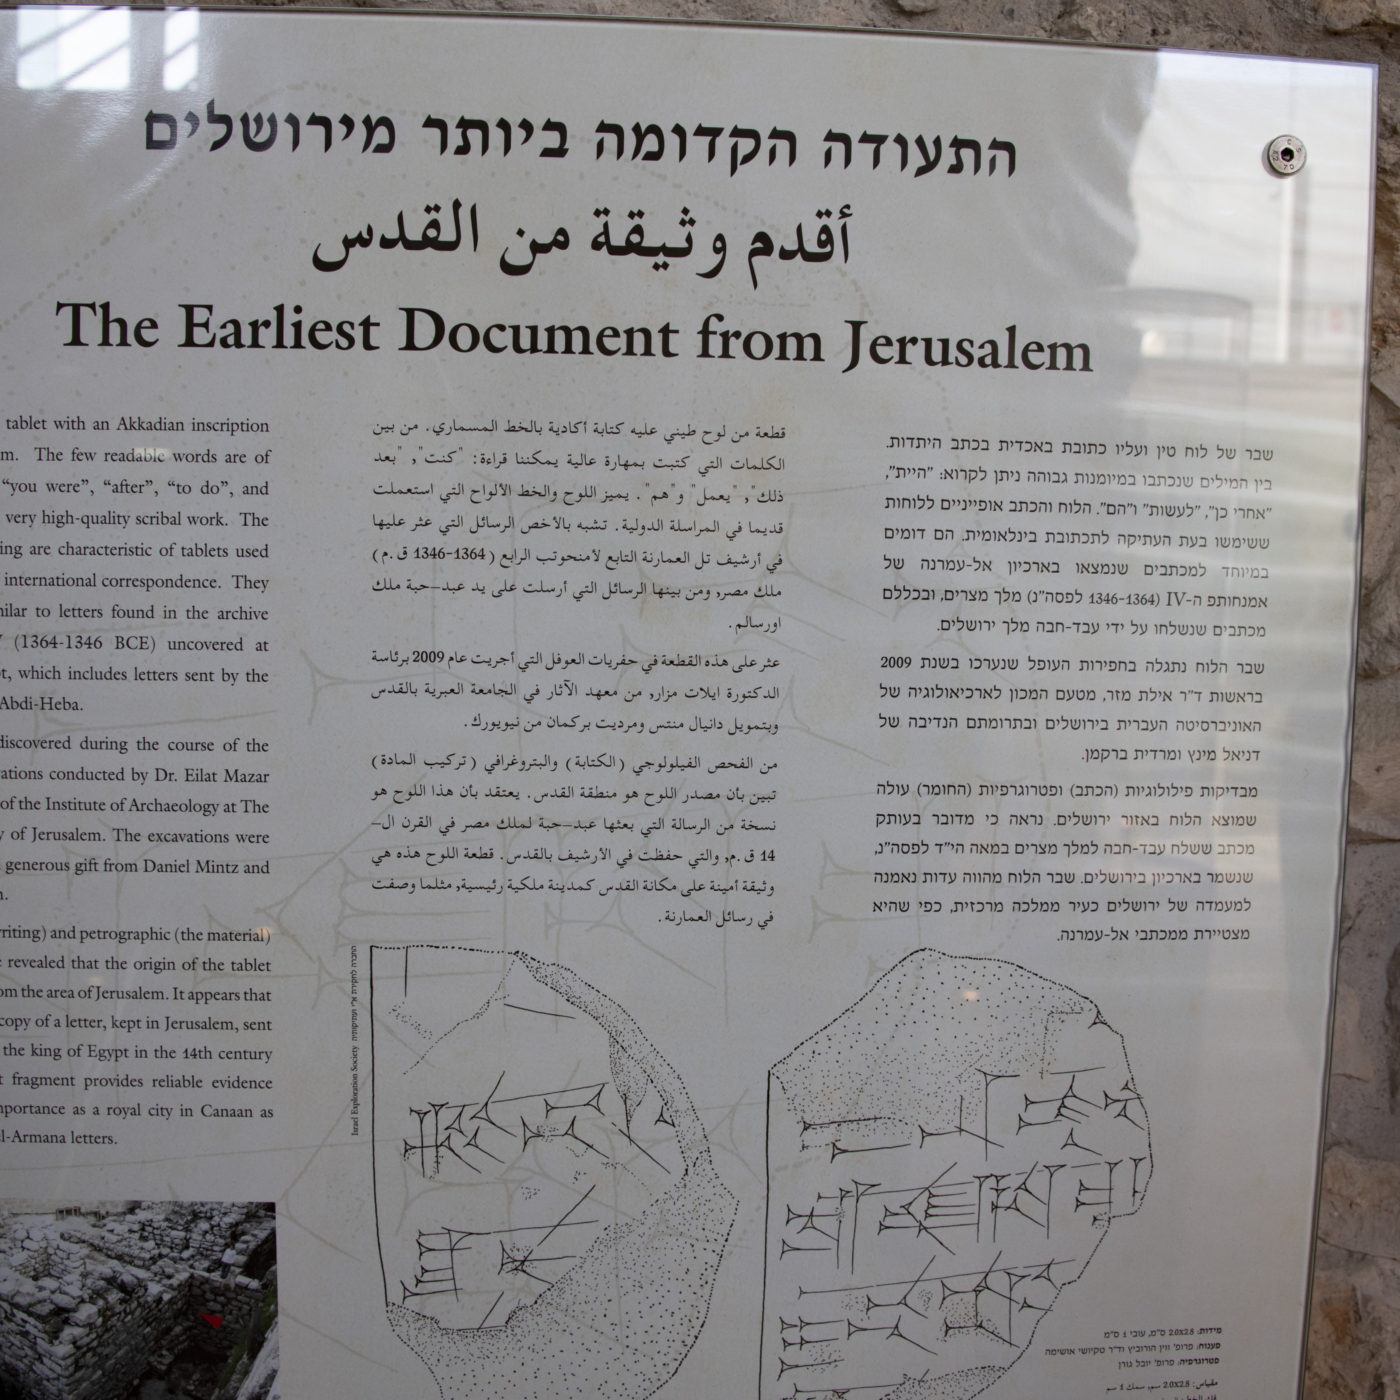 התעודה הקדומה ביותר מירושלים
أقدم وثيقة من القدس
The Earliest Document from Jerusalem
tablet with an Akkadian inscription
The few readable words are of
“you were”, “after”, “to do”, and
very high-quality scribal work. The
are characteristic of tablets used
international correspondence. They
to letters found in the archive
(1364-1346 BCE) uncovered at
which includes letters sent by the
Abdi-Heba.
discovered during the course of the
conducted by Dr. Eilat Mazar
of the Institute of Archaeology at The
of Jerusalem. The excavations were
generous gift from Daniel Mintz and
and petrographic (the material)
revealed that the origin of the tablet
the area of Jerusalem. It appears that
copy of a letter, kept in Jerusalem, sent
the king of Egypt in the 14th century
fragment provides reliable evidence
as a royal city in Canaan as
el-Armana letters.
قطعة من لوح طيني عليه كتابة أكادية بالخط المسماري. من بين
الكلمات التي كتبت بمهارة عالية يمكننا قراءة: "كنت", "بعد
ذلك", "يعمل" و"هم". يميز اللوح والخط الألواح التي استعملت
قديما في المراسلة الدولية. تشبه بالأخص الرسائل التي عثر عليها
في أرشيف تل العمارنة التابع لأمنحوتب الرابع (1364-1346 ق.م)
ملك مصر, ومن بينها الرسائل التي أرسلت على يد عبد-حبة ملك
اورسالم.
عثر على هذه القطعة في حفريات العوفل التي أجريت عام 2009 برئاسة
الدكتورة ايلات مزار, من معهد الآثار في الجامعة العبرية بالقدس
وبتمويل دانيال منتس ومرديت بركمان من نيويورك.
من الفحص الفيلولوجي (الكتابة) والبتروغرافي (تركيب المادة)
تبين بأن مصدر اللوح هو منطقة القدس. يعتقد بأن هذا اللوح هو
نسخة من الرسالة التي بعثها عبد-حبة لملك مصر في القرن ال-
14 ق.م, والتي حفظت في الأرشيف بالقدس. قطعة اللوح هذه هي
وثيقة أمينة على مكانة القدس كمدينة ملكية رئيسية, مثلما وصفت
في رسائل العمارنة.
שבר של לוח טין ועליו כתובת באכדית בכתב היתדות.
בין המילים שנכתבו במיומנות גבוהה ניתן לקרוא: "היית",
"אחרי כן", "לעשות" ו"הם". הלוח והכתב אופייניים ללוחות
ששימשו בעת העתיקה לתכתובת בינלאומית. הם דומים
במיוחד למכתבים שנמצאו בארכיון אל-עמרנה של
אמנחותפ ה-IV (1346-1364 לפסה"נ) מלך מצרים, ובכללם
מכתבים שנשלחו על ידי עבד-חבה מלך ירושלים.
שבר הלוח נתגלה בחפירות העופל שנערכו בשנת 2009
בראשות ד"ר אילת מזר, מטעם המכון לארכיאולוגיה של
האוניברסיטה העברית בירושלים ובתרומתם הנדיבה של
דניאל מינץ ומרדית ברקמן.
מבדיקות פילולוגיות (הכתב) ופטרוגרפיות (החומר) עולה
שמוצא הלוח באזור ירושלים. נראה כי מדובר בעותק
מכתב ששלח עבד-חבה למלך מצרים במאה הי"ד לפסה"נ,
שנשמר בארכיון בירושלים. שבר הלוח מהווה עדות נאמנה
למעמדה של ירושלים כעיר ממלכה מרכזית, כפי שהיא
מצטיירת ממכתבי אל-עמרנה.
Israel Exploration Society החברה לחקירת א"י ועתיקותיה
מידות: 2.0X2.8 ס"מ, עובי 1 ס"מ
פענוח: פרופ' ווין הורוביץ וד"ר טקיושי אושימה
פטרוגרפיה: פרופ' יובל גורן
مقياس: 2.0X2.8 سم, سمك 1 سم